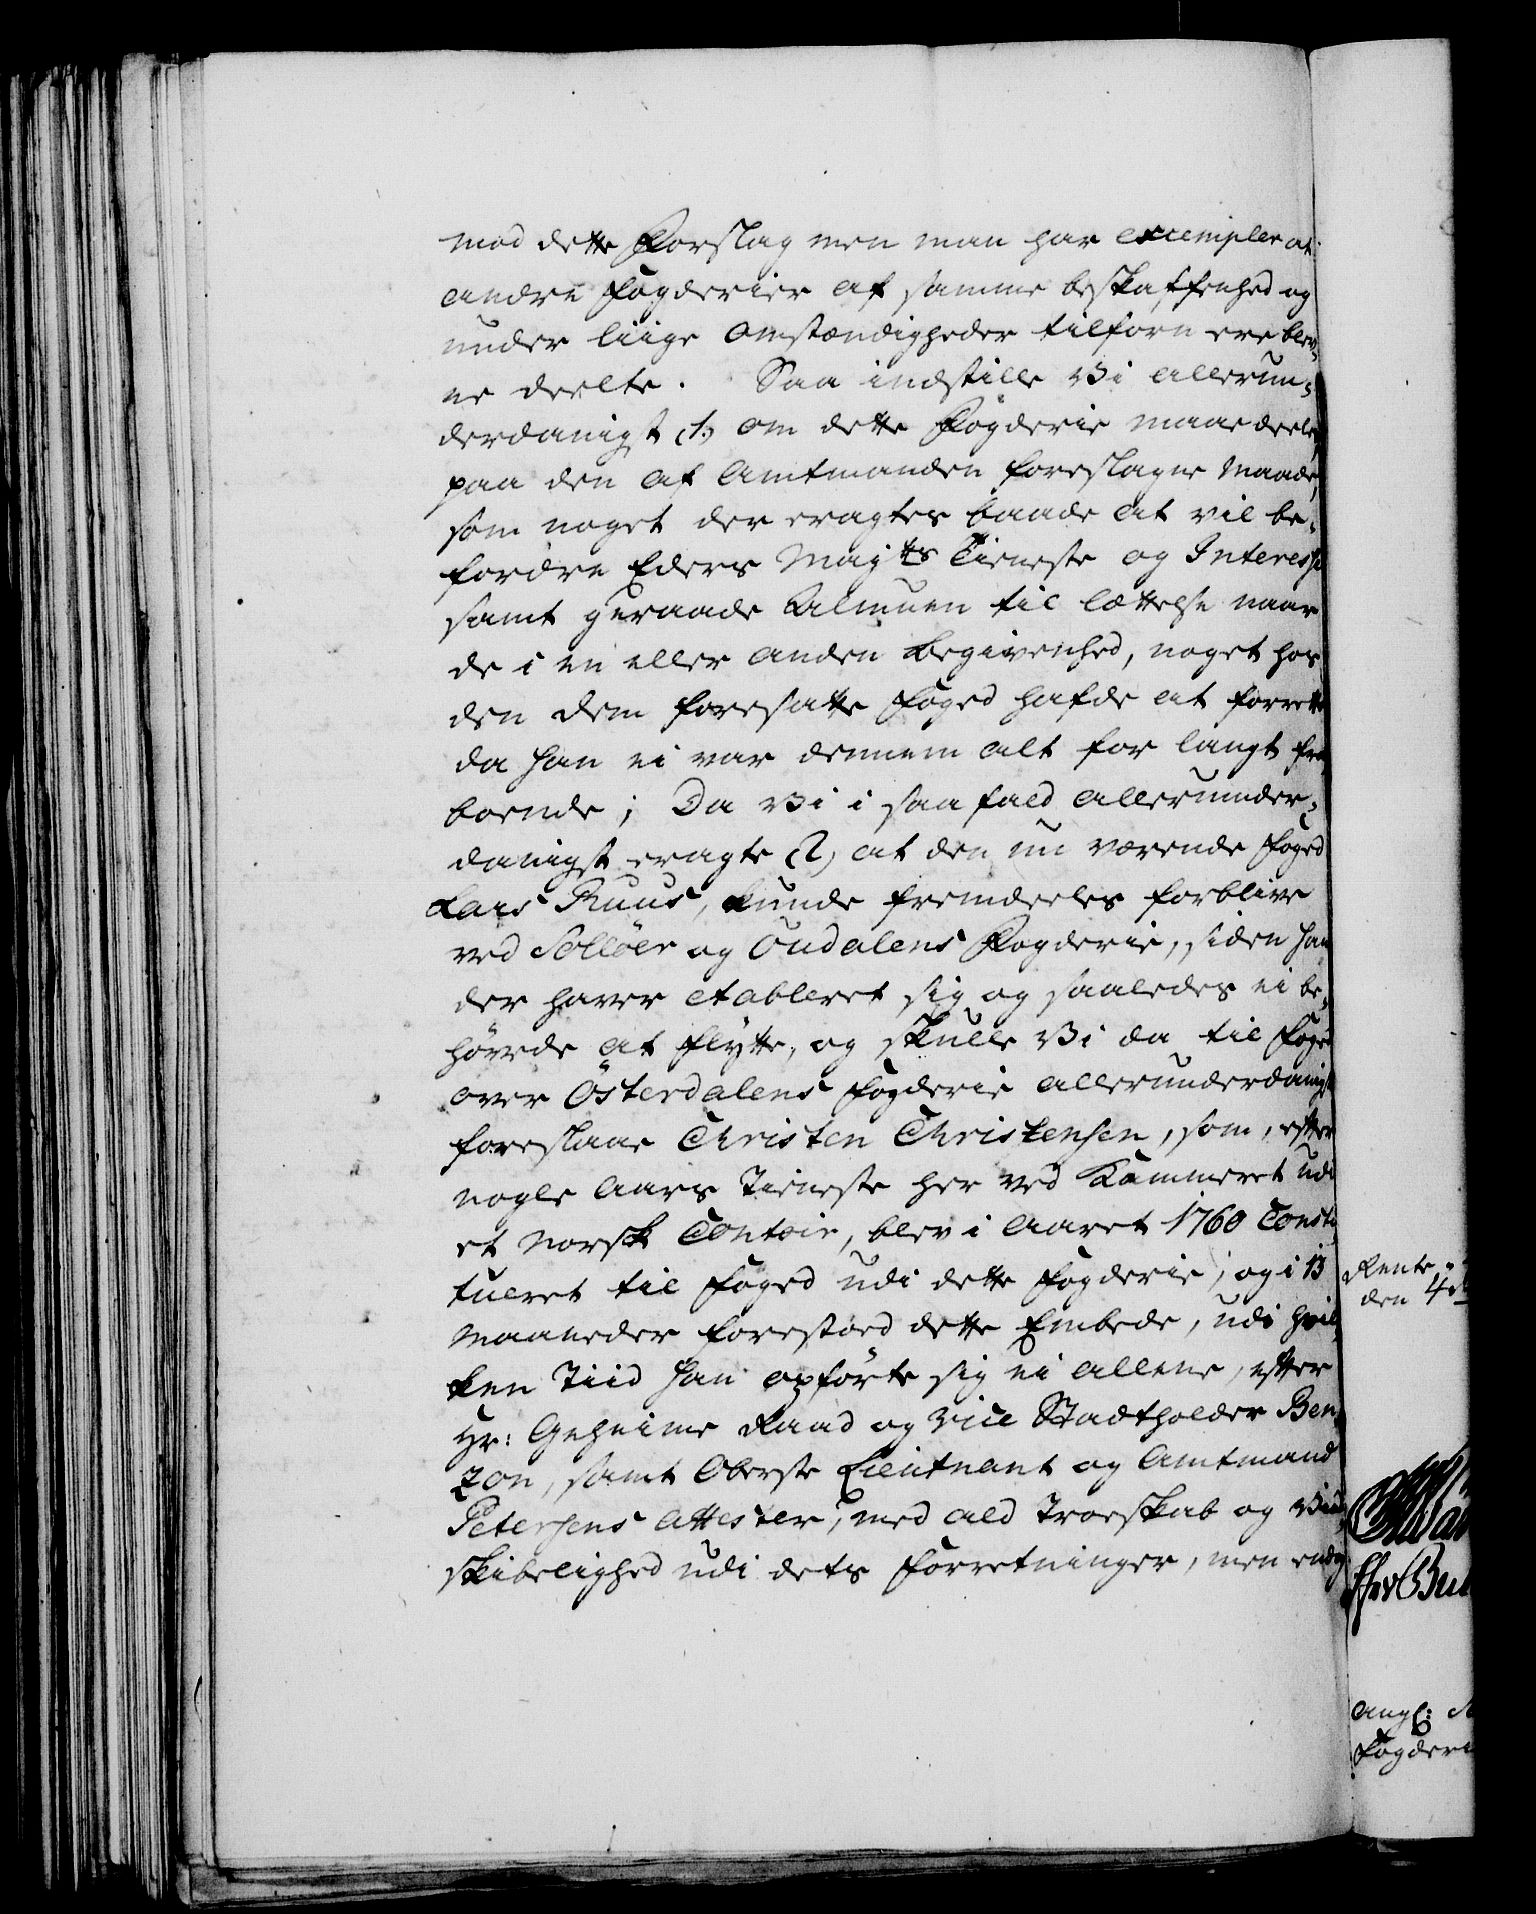 mod dette Forslag men man har exempler at
andre Fogderier af samme beskaffenhed og
under liige Omstændigheder tilforn ere blev-
ne deelte. Saa indstille Vi allerun-
derdanigst (1.) om dette Fogderie maae deeles
paa den af Amtmanden foreslagne Maade,
som noget der eragtes baade at vil be-
fordre Eders Mayts Tieneste og Interesse
samt geraade Almuen til lættelse naar
de i en eller anden Begivenhed, noget hos
den dem foresatte Foged hafde at forrette
da han ei var dennem alt for langt fra
boende; Da Vi i saa fald allerunder-
danigst eragte (2) at den nu værende Foged
Lars Ruus, kunde fremdeeles forblive
ved Solløer og Oudalens Fogderie, siden han
der haver etableret sig og saaledes ei be-
høvede at flytte, og skulle Vi da til Foged
over Østerdalens Fogderie allerunderdanigst
foreslaae Christen Christensen, som, efter
nogle Aars Tieneste her ved Kammeret udi
et Norsk Contoir, blev i Aaret 1760 Consti-
tueret til Foged udi dette Fogderie, og i 13
Maaneder forestoed dette Embede, udi hvil-
ken Tiid han opførte sig ei allene, efter
Hr: Geheime Raad og Vice Stadtholder Ben-
zon, samt Oberste Lieutnant og Amtmand
Petersens Attester, med ald Troeskab og Vind-
skibelighed udi dets Forretninger, men endog
Rente-
den 4de
Ang:
Fogderi